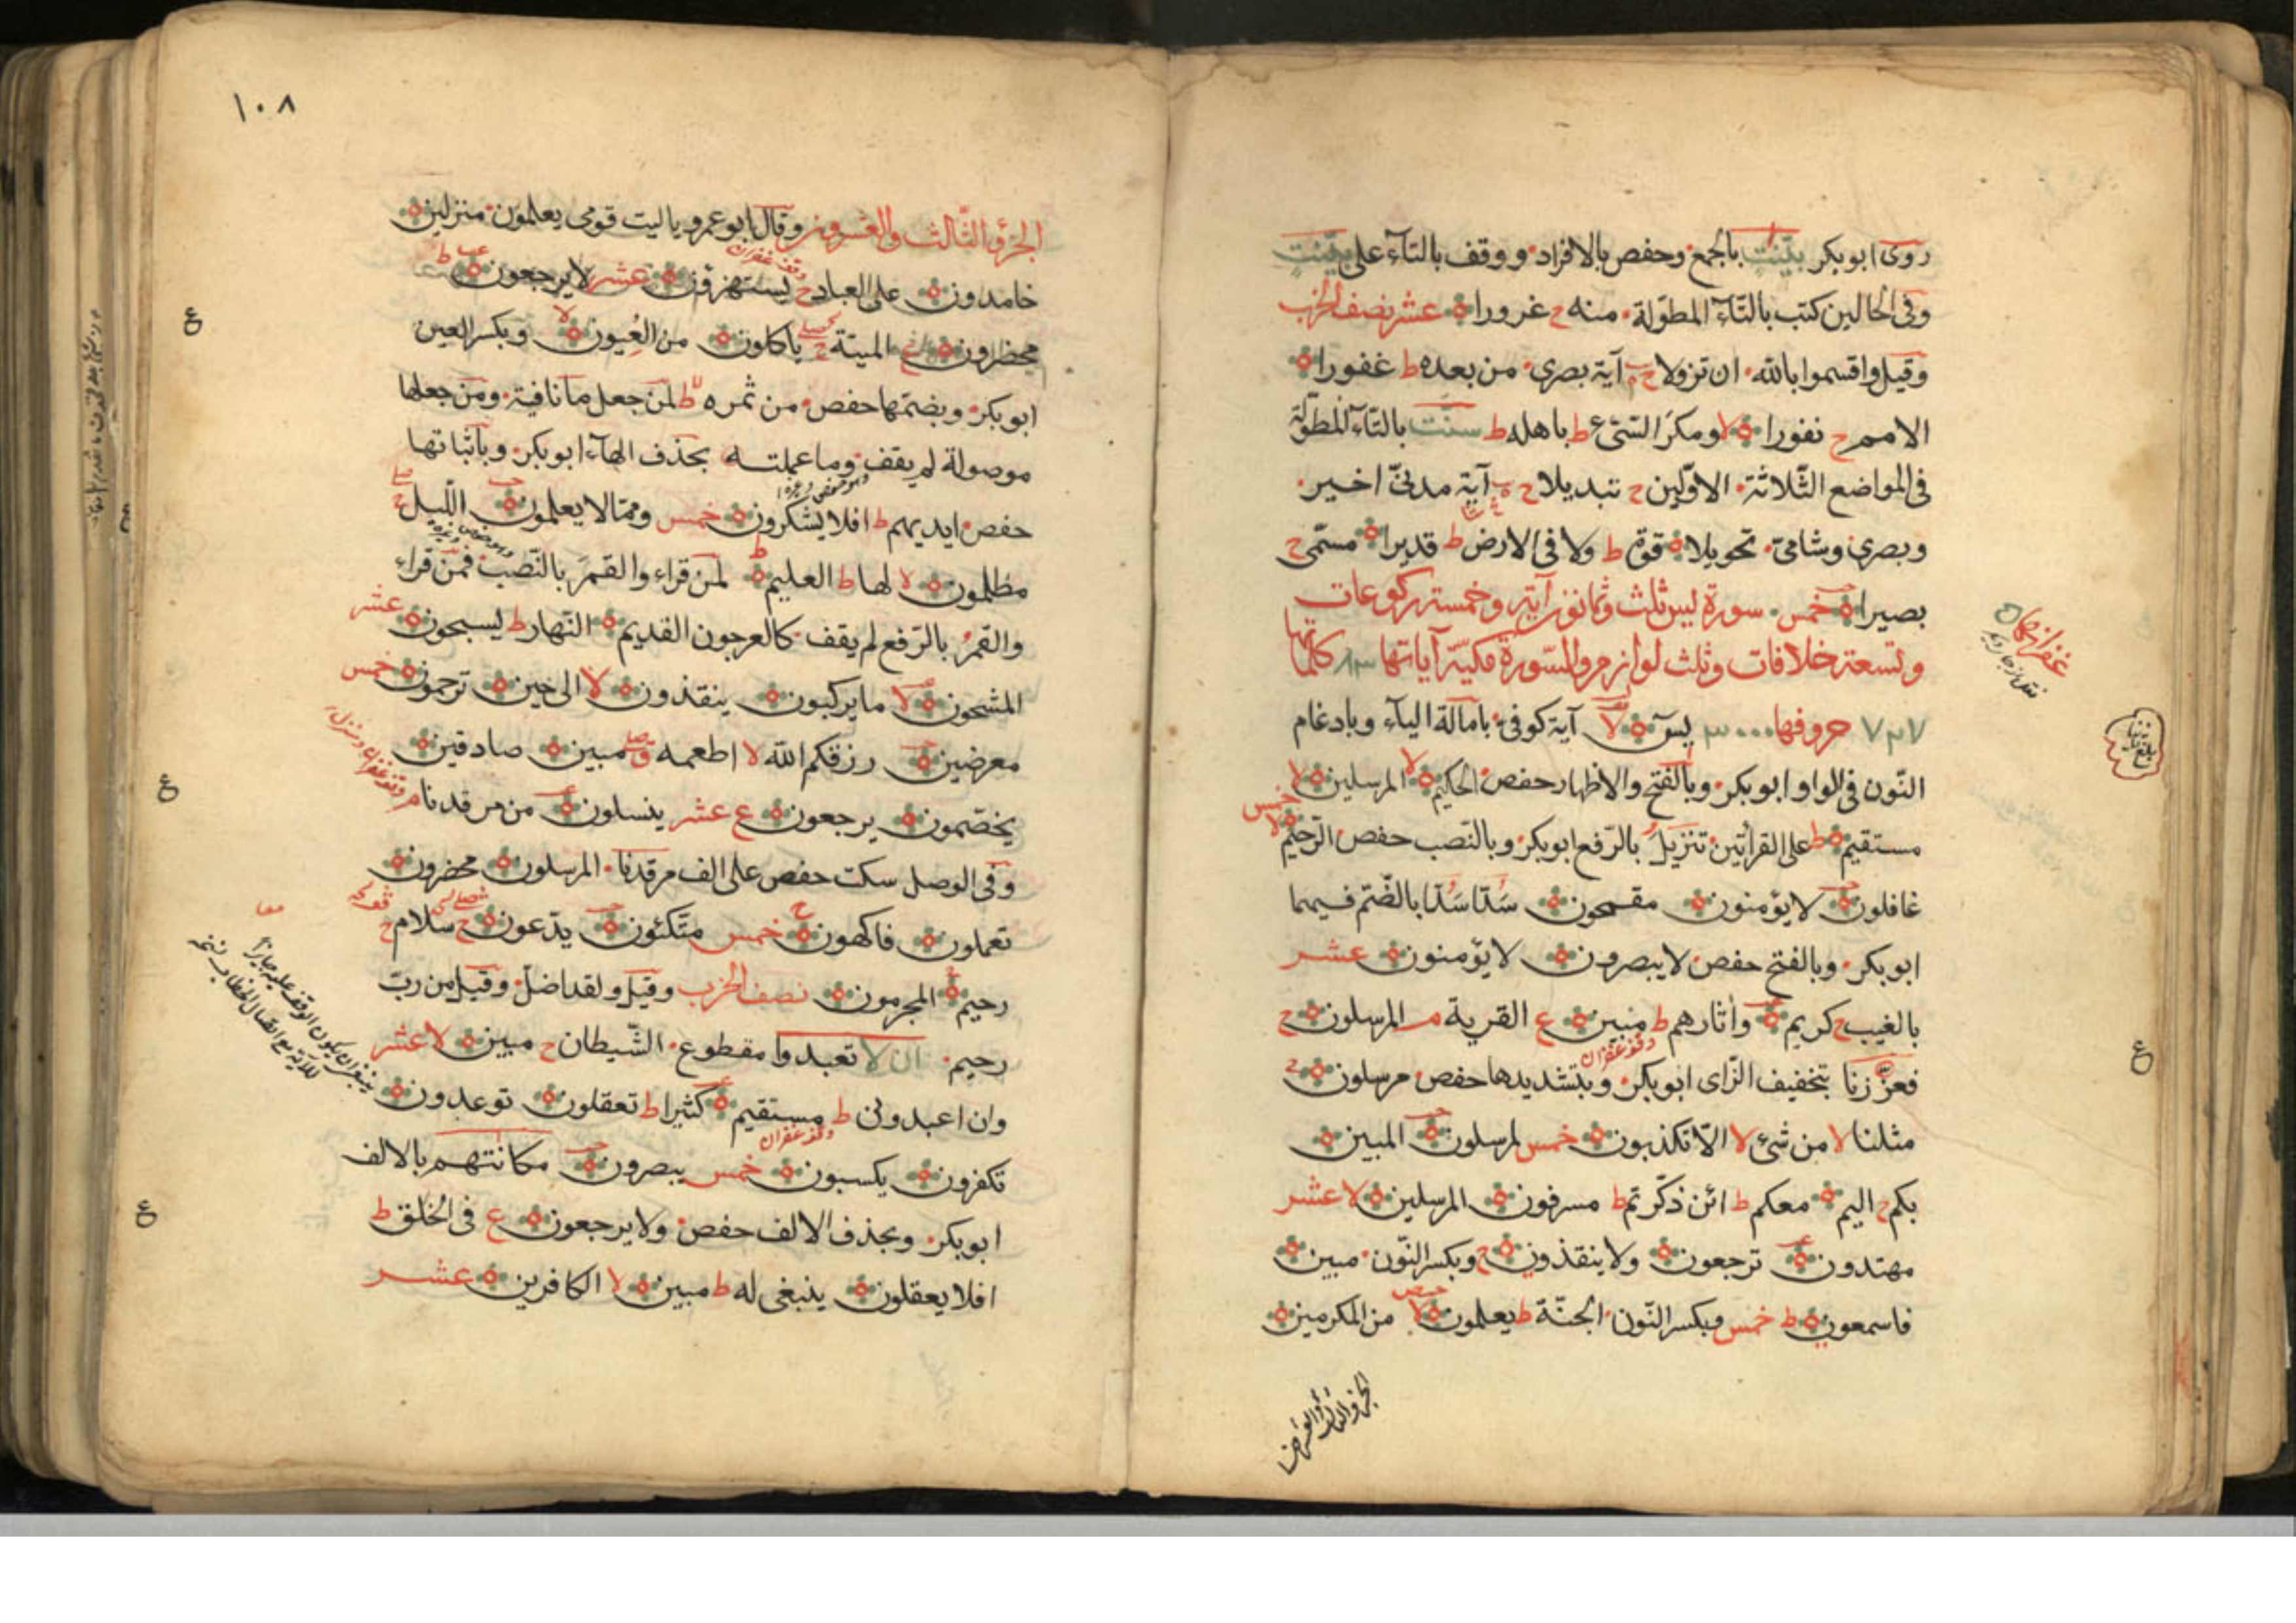 روى ابوبكر بيّنت بالجمع وحفص بالافراد ووقف بالتاء على بيّنت
وفى الحالين كتب بالتّاء المطوّلة منه ح غرورا عشر نصف الحزب
وقيل واقسموا بالله ان تزولا ح آية بصرى من بعده ط غفورا
الامم ح نفورا لا ومكر السّيّئ ط باهله ط سنّت بالتّاء المطوّلة
فى المواضع الثّلاثة الاوّلين ح تبديلا ح آية مدنىّ اخير
وبصرى وشامىّ تحويلا قوّة ط ولا فى الارض ط قديرا مسمّى ح
بصيرا خمس سورة يس ثلث وثمانون آية وخمسة ركوعات
وتسعة خلافات وثلث لوازم والسّورة مكيّة آياتها ٨٣ كلماتها
٧٢٧ حروفها ٣٠٠٠ يس لا آية كوفى بامالة الياء وبادغام
النّون فى الواو ابوبكر وبالفتح والاظهار حفص الحكيم لا المرسلين لا
مستقيم ط على القرأتين تنزيل بالرّفع ابوبكر وبالنّصب حفص الرّحيم لا خمس
غافلون لا يؤمنون مقمحون سدّا سدّا بالضّم فيهما
ابوبكر وبالفتح حفص لا يبصرون لا يؤمنون عشر
بالغيب ح كريم واثارهم ط مبين ع القرية م المرسلون ح
وقف غفران
فعزّزنا بتخفيف الزّاى ابوبكر وبتشديدها حفص مرسلون
مثلنا لا من شئ لا الّا تكذبون خمس لمرسلون المبين
بكم ح اليم معكم ط ائن ذكّرتم ط مسرفون المرسلين لا عشر
مهتدون ترجعون ولا ينقذون ح وبكسر النّون مبين
فاسمعون ط خمس وبكسر النّون الجنّة ط يعلمون لا من المكرمين
ع
١٠٨
الجزؤ الثّالث والعشرون وقال ابو عمرو ياليت قومى يعلمون منزلين
وقف غفران
خامدون على العباد ح يستهزؤن عشر لا يرجعون ط
محضرون ع الميتة ح ياكلون من العيون لا وبكسر العين
ابوبكر وبضمّها حفص من ثمره ط لمن جعل ما نافية ومن جعلها
موصولة لم يقف وما عملته بحذف الهاء ابوبكر وباثباتها
حفص ايديهم ط افلا يشكرون خمس وممّا لا يعلمون اللّيل ح
مظلمون لا لها ط العليم ط لمن قراء والقمر بالنّصب فمن قراء
والقمر بالرّفع لم يقف كالعرجون القديم النّهار ط يسبحون عشر
المشحون لا ما يركبون ينقذون لا الى حين ترحمون خمس
معرضين رزقكم الله لا اطعمه مبين صادقين
يخصّمون يرجعون ع عشر ينسلون من مرقدنا م
وفى الوصل سكت حفص على الف مرقدنا المرسلون محضرون
تعملون فاكهون ح خمس متّكئون يدّعون ح سلام ح
رحيم المجرمون نصف الحزب وقيل ولقد اضلّ وقيل من ربّ
رحيم ان لا تعبدوا مقطوع الشّيطان ح مبين لا عشر
وان اعبدونى ط مستقيم كثيرا ط تعقلون توعدون
وقف غفران
تكفرون يكسبون خمس يبصرون مكانتهم بالالف
ابوبكر وبحذف الالف حفص ولا يرجعون ع فى الخلق ط
افلا يعقلون ينبغى له ط مبين لا الكافرين عشر
ع
ع
ع